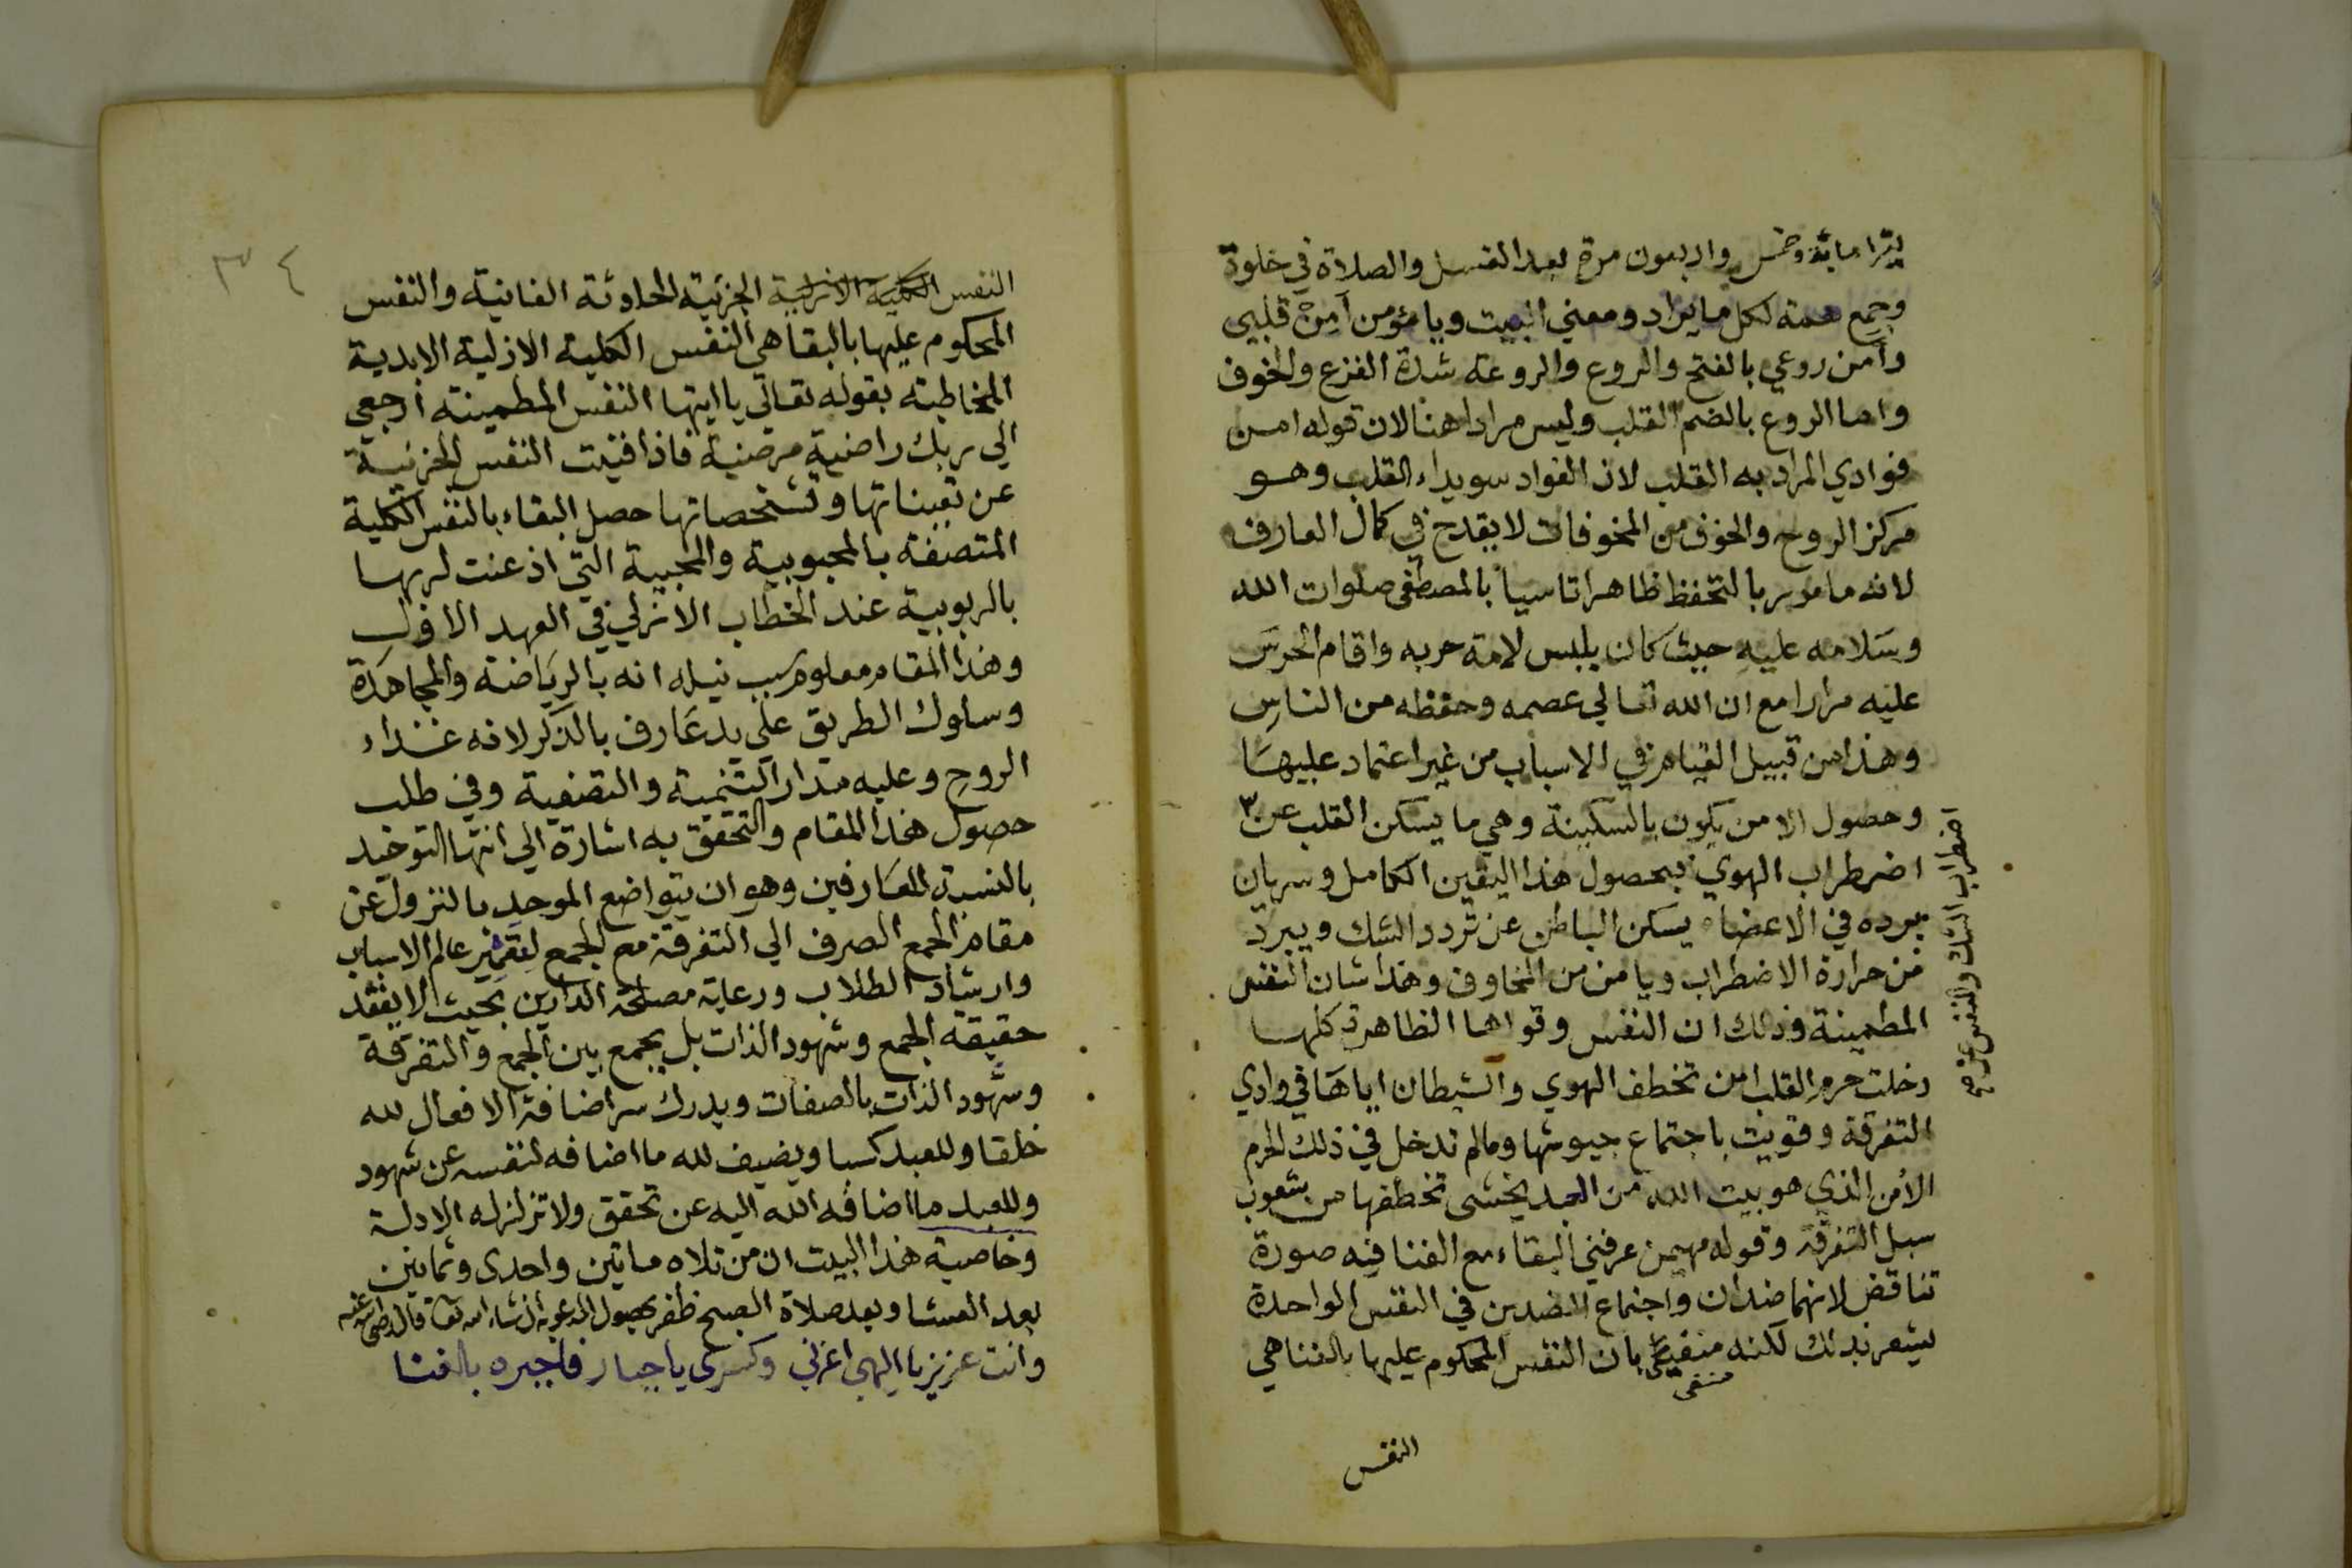 يقرا ماية وخمس واربعون مرة بعد الغسل والصلاة في خلوة
وجمع همة لكل ما يراد ومعني البيت ويا مؤمن آمن قلبي
وأمن روعي بالفتح والروع والروعة شدة الفزع والخوف
واما الروع بالضم القلب وليس مرادا هنا لان قوله امن
فوادي المراد به القلب لان الفواد سويداء القلب وهو
مركز الروح والخوف من المخوفات لا يقدح في كمال العارف
لانه مامور بالتحفظ ظاهرا تاسيا بالمصطفى صلوات الله
وسلامه عليه حيث كان يلبس لامة حربه واقام الحرس
عليه مرارا مع ان الله تعالي عصمه وحفظه من الناس
وهذا من قبيل القيام في الاسباب من غير اعتماد عليها
وحصول الامن يكون بالسكينة وهي ما يسكن القلب عن
اضطراب الهوي فبحصول هذا اليقين الكامل وسريان
برده في الاعضاء يسكن الباطن عن تردد الشك ويبرد
من حرارة الاضطراب ويامن من المخاوف وهذا شان النفس
المطمينة وذلك ان النفس وقواها الظاهرة كلها
دخلت حرم القلب امن تخطف الهوي والشيطان اياها في وادي
التفرقة وقويت باجتماع جيوشها ومالم تدخل في ذلك الحرم
الأمن الذي هو بيت الله من العبد يخشى تخطفها من شعوب
سبل التفرقة وقوله مهيمن عرفني البقاء مع الفنا فيه صورة
تناقض لانهما ضدان واجتماع الضدين في النفس الواحدة
يشعر بذلك لكنه منفي بان النفس المحكوم عليها بالفنا هي
منفى
النفس
اضطراب الشك والنفس عن
٣٤
النفس الكلية الازلية الجزئية الحادثة الفانية والنفس
المحكوم عليها بالبقا هي النفس الكلية الازلية الابدية
المخاطبة بقوله تعالى يا ايتها النفس المطمينة ارجعي
الي ربك راضية مرضية فاذا فنيت النفس الجزئية
عن تعيناتها وتشخصاتها حصل البقاء بالنفس الكلية
المتصفة بالمحبوبية والمحبية التي اذعنت لربها
بالربوبية عند الخطاب الازلي في العهد الاول
وهذا المقام معلوم سبب نيله انه بالرياضة والمجاهدة
وسلوك الطريق علي يد عارف بالذكر لانه غذاء
الروح وعليه مدار التنمية والتصفية وفي طلب
حصول هذا المقام والتحقق به اشارة الي انتها التوحيد
بالنسبة للعارفين وهو ان يتواضع الموحد بالنزول عن
مقام الجمع الصرف الي التفرقة مع الجمع لتقرير عالم الاسباب
وارشاد الطلاب ورعاية مصلحة الدارين بحيث لا يفقد
حقيقة الجمع وشهود الذات بل يجمع بين الجمع والتفرقة
وشهود الذات بالصفات ويدرك سر اضافة الافعال لله
خلقا وللعبد كسبا ويضيف لله ما اضافه لنفسه عن شهود
وللعبد ما اضافه الله اليه عن تحقق ولا تزلزله الادلة
وخاصية هذا البيت ان من تلاه ماتين واحدى وثمانين
بعد العشا وبعد صلاة الصبح ظفر بحصول المدعو به ان شاء الله تعالى قال رضي الله عنه
وانت عزيز يا الهي اعزني وكسري يا جبار فاجبره بالغنا